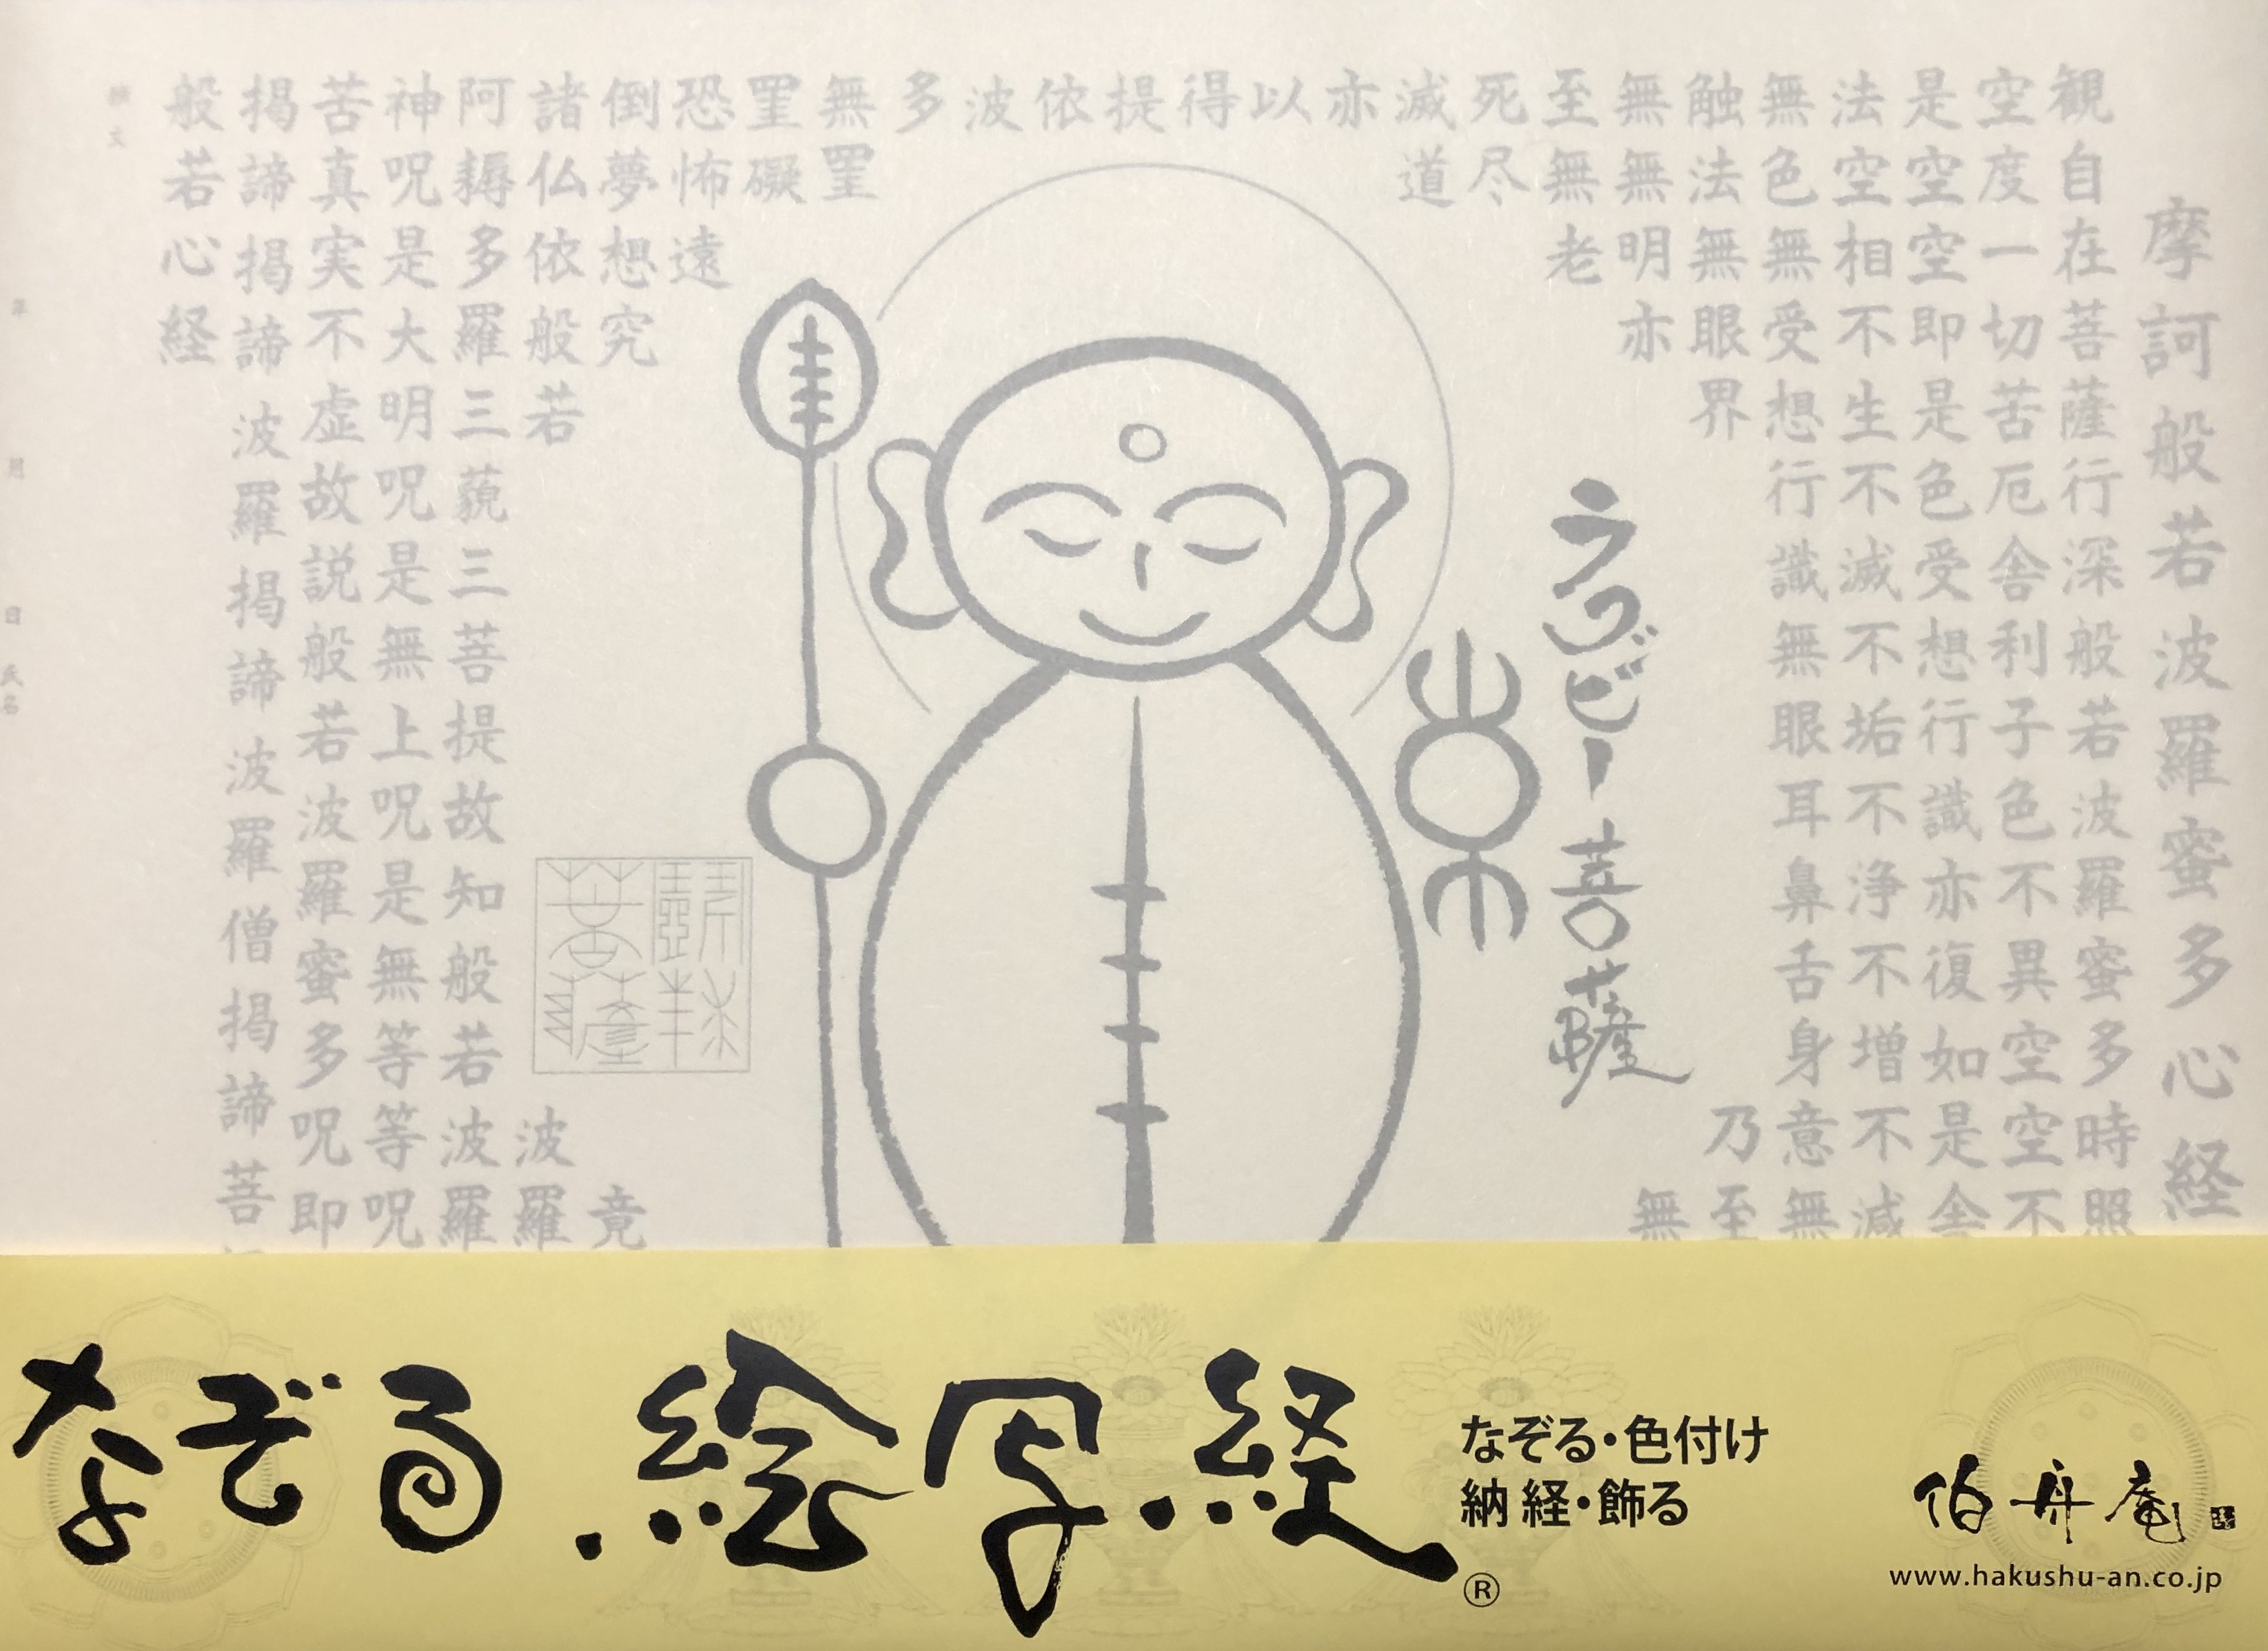 摩訶般若波羅蜜多心経
観自在菩薩行深般若波羅蜜多時照
空度一切苦厄舎利子色不異空空不
是空空即是色受想行識亦復如是舎
法空相不生不滅不垢不浄不増不減
無色無受想行識無眼耳鼻舌身意無
触法無眼界 乃至
無無明亦 無
至無老
死尽
滅道
亦
以
得
提
依
波
多
無罣
罣礙
恐怖遠
倒夢想究 竟
諸仏依般若 波羅
阿耨多羅三藐三菩提故知般若波羅
神呪是大明呪是無上呪是無等等呪
苦真実不虚故説般若波羅蜜多呪即
掲諦掲諦波羅掲諦波羅僧掲諦菩
般若心経
願文
年 月 日 氏名
ラグビー菩薩
なぞる.絵写経®
なぞる・色付け
納経・飾る
伯舟庵
www.hakushu-an.co.jp